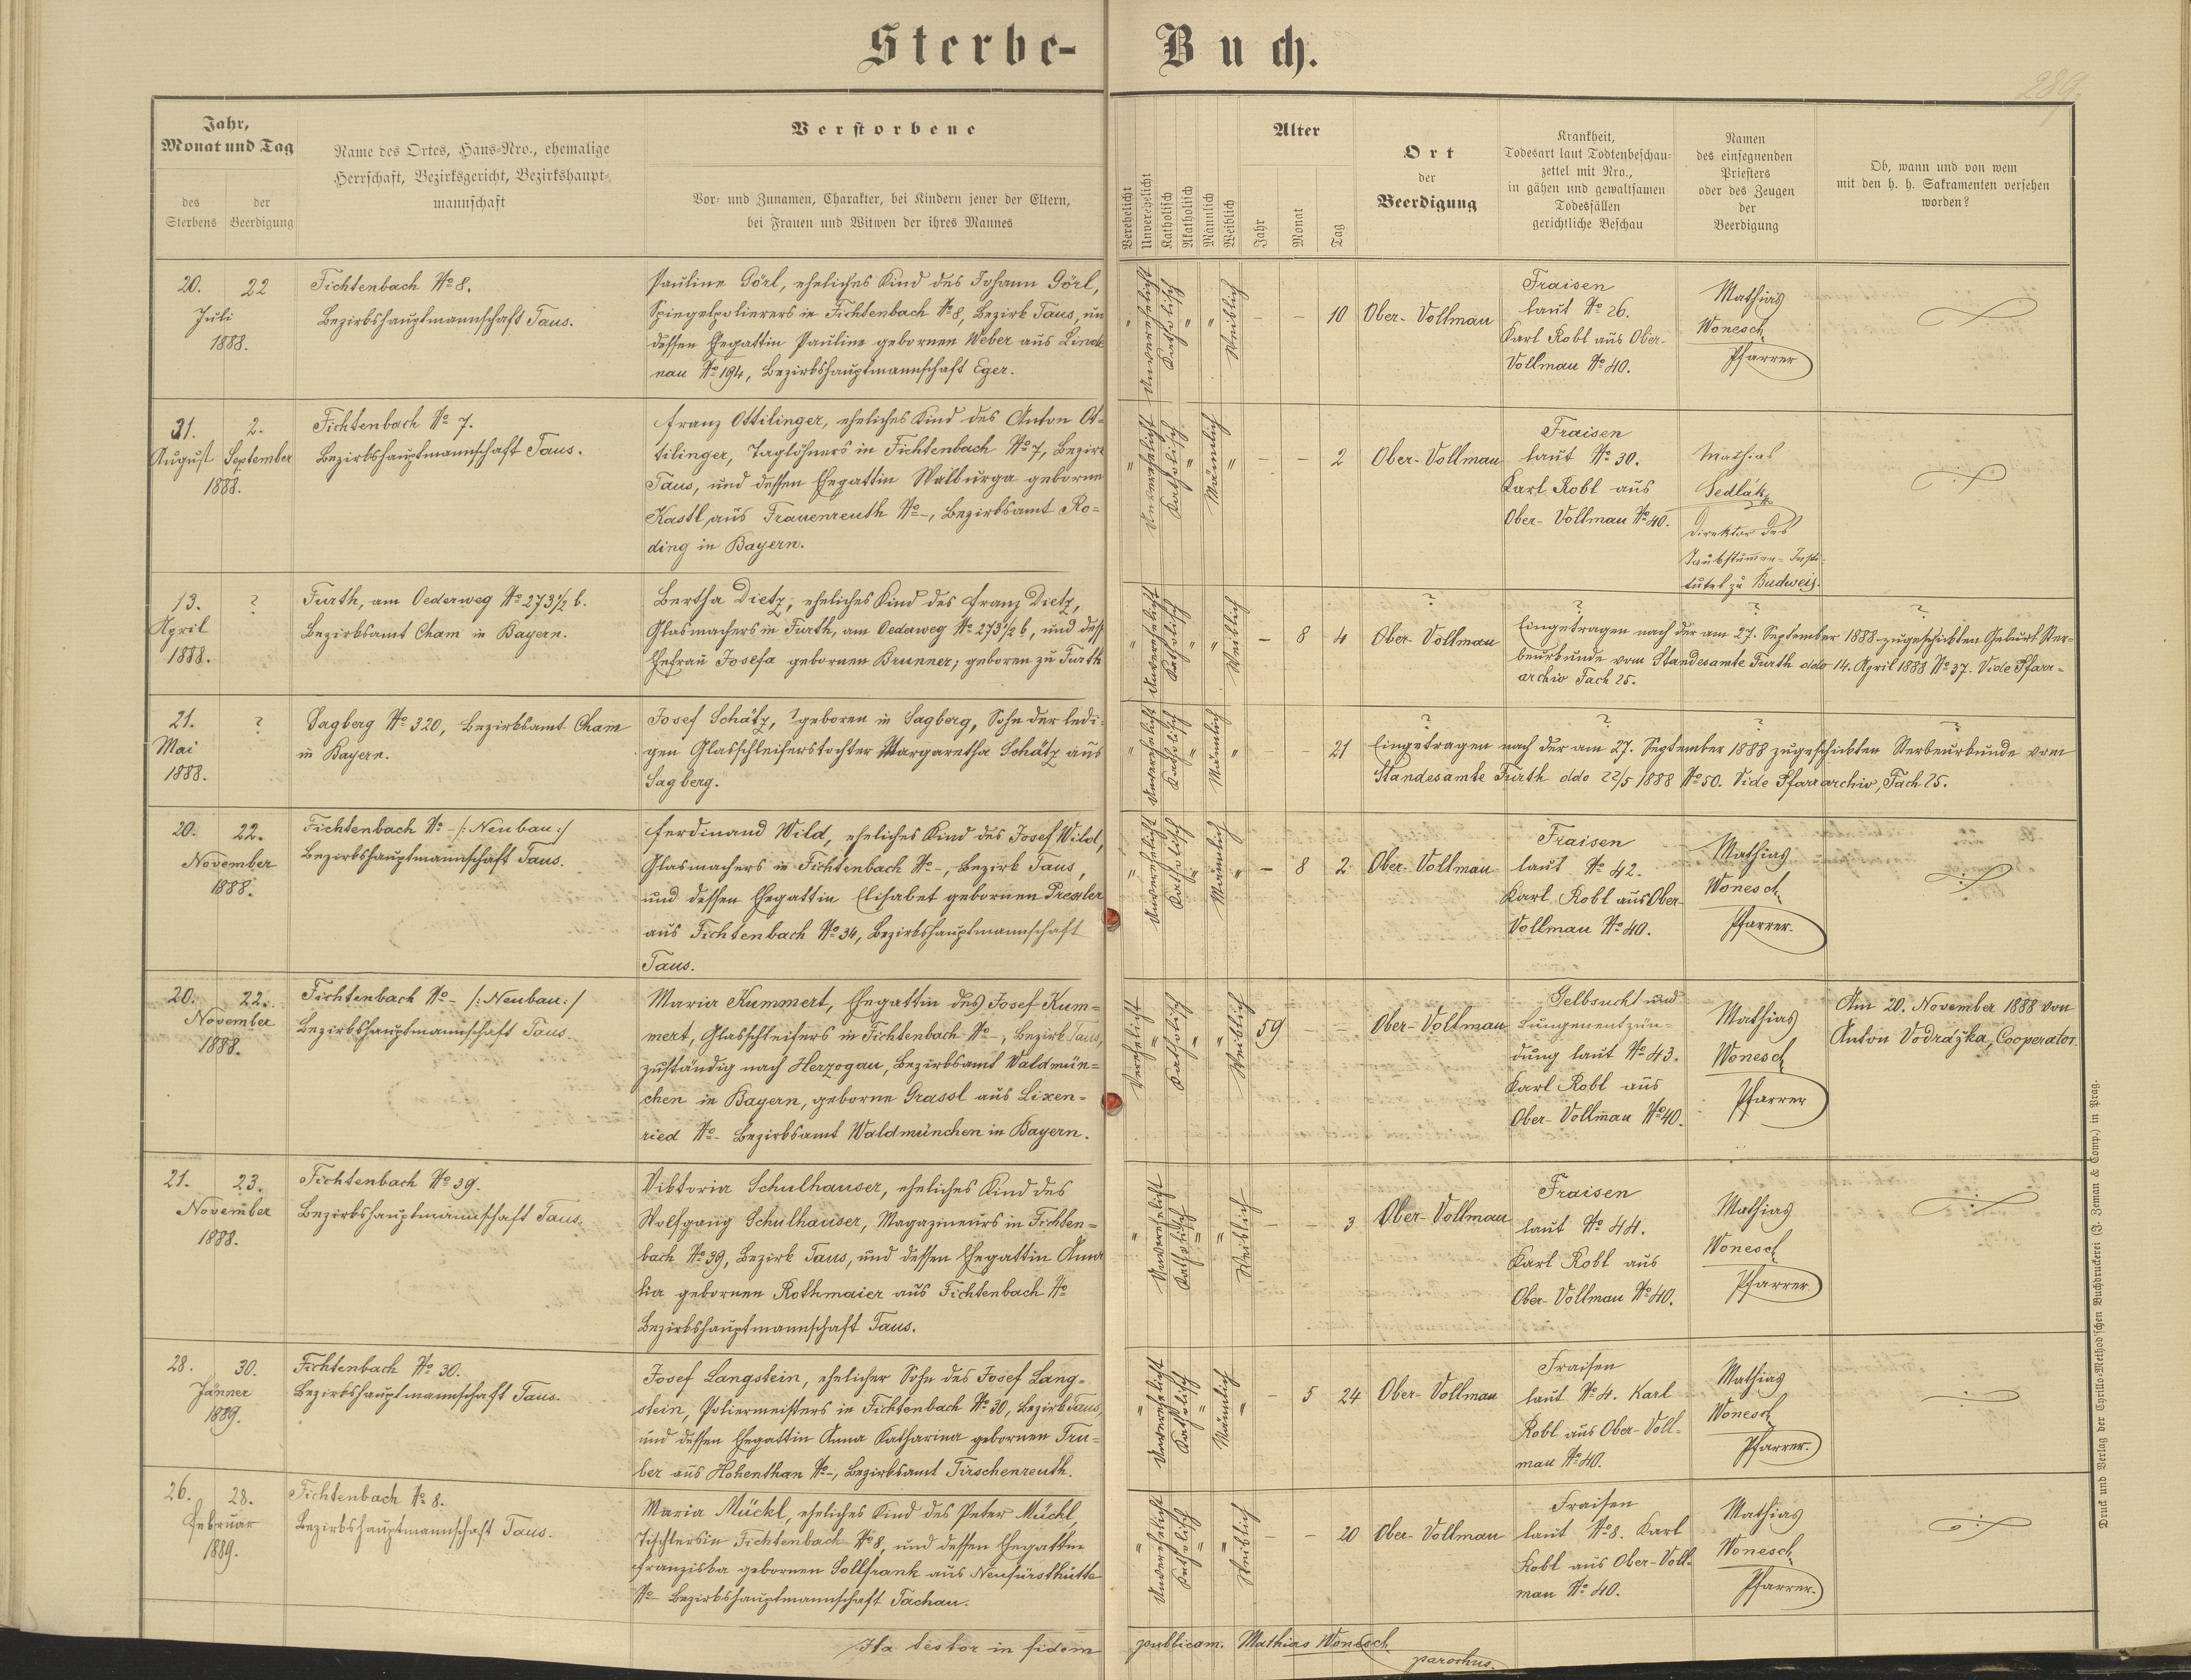 Sterbe-Buch.
289.
Jahr, Monat und Tag
des Sterbens
der Beerdigung
Name des Ortes, Haus-Nro., ehemalige
Herrschaft, Bezirksgericht, Bezirkshaupt-
mannschaft
Verstorbene
Vor- und Zunamen, Charakter, bei Kindern jener der Eltern,
bei Frauen und Witwen der ihres Mannes
Verehelicht
Unverehelicht
Katholisch
Akatholisch
Männlich
Weiblich
Alter
Jahr
Monat
Tag
Ort
der
Beerdigung
Krankheit,
Todesart laut Todtenbeschau-
zettel mit Nro.,
in gähen und gewaltsamen
Todesfällen
gerichtliche Beschau
Namen
des einsegnenden
Priesters
oder des Zeugen
der
Beerdigung
Ob, wann und von wem
mit den h. h. Sakramenten versehen
worden?
20. 22
Juli
1888.
Fichtenbach No 8.
Bezirkshauptmannschaft Taus.
Pauline Görl, eheliches Kind des Johann Görl,
Spiegelpolierers in Fichtenbach No 8, Bezirk Taus, un
dessen Ehegattin Pauline gebornen Weber aus Linde
nau No 194, Bezirkshauptmannschaft Eger.
" Unverehelicht Katholisch " " Weiblich
- - 10
Ober-Vollmau
Fraisen
laut No 26.
Karl Robl aus Ober-
Vollmau No 40.
Mathias
Wonesch
Pfarrer
31. 2.
August September
1888.
Fichtenbach No 7.
Bezirkshauptmannschaft Taus.
Franz Ottilinger, eheliches Kind des Anton Ot-
tilinger, Taglöhners in Fichtenbach No 7, Bezirk
Taus, und dessen Ehegattin Walburga geborne
Kastl, aus Frauenreuth No -, Bezirksamt Ro-
ding in Bayern.
" Unverehelicht Katholisch " Männlich "
- - 2
Ober-Vollmau
Fraisen
laut No 30.
Karl Robl aus
Ober-Vollmau No 40.
Mathias
Sedlák
Direktor des
Taubstummen-Insti-
tutes zu Budweis.
13. ?
April
1888.
Furth, am Oederweg No 273 1/2 b.
Bezirksamt Cham in Bayern.
Bertha Dietz, eheliches Kind des Franz Dietz,
Glasmachers in Furth, am Oederweg No 273 1/2 b, und dess
Ehefrau Josefa gebornen Brunner; geboren zu Furth
" Unverehelicht Katholisch " " Weiblich
- 8 4
?
Ober-Vollmau
? ? ?
Eingetragen nach der am 27. September 1888 zugeschickten Geburt Ster-
beurkunde vom Standesamte Furth ddo 14. April 1888 No 37. Vide Pfarr-
archiv Fach 25.
21. ?
Mai
1888.
Sagberg No 320, Bezirksamt Cham
in Bayern.
Josef Schätz, ? geboren in Sagberg, Sohn der ledi-
gen Glasschleiferstochter Margaretha Schätz aus
Sagberg.
" Unverehelicht Katholisch " Männlich "
- - 21
? ? ? ?
Eingetragen nach der am 27. September 1888 zugeschickten Sterbeurkunde vom
Standesamte Furth ddo 22/5 1888 No 50. Vide Pfarrarchiv, Fach 25.
20. 22.
November
1888.
Fichtenbach No - /: Neubau :/
Bezirkshauptmannschaft Taus.
Ferdinand Wild, eheliches Kind des Josef Wild,
Glasmachers in Fichtenbach No -, Bezirk Taus,
und dessen Ehegattin Elisabet gebornen Pressler
aus Fichtenbach No 34, Bezirkshauptmannschaft
Taus.
" Unverehelicht Katholisch " Männlich "
- 8 2
Ober-Vollmau
Fraisen
laut No 42.
Karl Robl aus Ober-
Vollmau No 40.
Mathias
Wonesch
Pfarrer.
20. 22.
November
1888.
Fichtenbach No - /: Neubau :/
Bezirkshauptmannschaft Taus.
Maria Kummert, Ehegattin des Josef Kum-
mert, Glasschleifers in Fichtenbach No -, Bezirk Taus,
zuständig nach Herzogau, Bezirksamt Waldmün-
chen in Bayern, geborne Grassl aus Lixen-
ried No - Bezirksamt Waldmünchen in Bayern.
Verehelicht " Katholisch " " Weiblich
59 - -
Ober-Vollmau
Gelbsucht und
Lungenentzün-
dung laut No 43.
Karl Robl aus
Ober-Vollmau No 40.
Mathias
Wonesch
Pfarrer
Am 20. November 1888 von
Anton Vodrážka, Cooperator.
21. 23.
November
1888.
Fichtenbach No 39.
Bezirkshauptmannschaft Taus.
Viktoria Schulhauser, eheliches Kind des
Wolfgang Schulhauser, Magazineurs in Fichten-
bach No 39, Bezirk Taus, und dessen Ehegattin Ama
lia gebornen Rothmaier aus Fichtenbach No
Bezirkshauptmannschaft Taus.
" Unverehelicht Katholisch " " Weiblich
- - 3
Ober-Vollmau
Fraisen
laut No 44.
Karl Robl aus
Ober-Vollmau No 40.
Mathias
Wonesch
Pfarrer
28. 30.
Jänner
1889.
Fichtenbach No 30.
Bezirkshauptmannschaft Taus.
Josef Langstein, ehelicher Sohn des Josef Lang-
stein, Poliermeisters in Fichtenbach No 30, Bezirk Taus,
und dessen Ehegattin Anna Katharina gebornen Tru-
ber aus Hohenthan No -, Bezirksamt Tirschenreuth.
" Unverehelicht Katholisch " Männlich "
- 5 24
Ober-Vollmau
Fraisen
laut No 4. Karl
Robl aus Ober-Voll-
mau No 40.
Mathias
Wonesch
Pfarrer.
26. 28.
Februar
1889.
Fichtenbach No 8.
Bezirkshauptmannschaft Taus.
Maria Mückl, eheliches Kind des Peter Mückl,
Tischlers in Fichtenbach No 8, und dessen Ehegattin
Franziska gebornen Sollfrank aus Neufürsthütte
No - Bezirkshauptmannschaft Tachau.
" Unverehelicht Katholisch " " Weiblich
- - 20
Ober-Vollmau
Fraisen
laut No 8. Karl
Robl aus Ober-Voll-
mau No 40.
Mathias
Wonesch
Pfarrer.
Ita testor in fidem publicam. Mathias Wonesch
parochus.
Druck und Verlag der Cyrillo-Method'schen Buchdruckerei (J. Zeman & Comp.) in Prag.